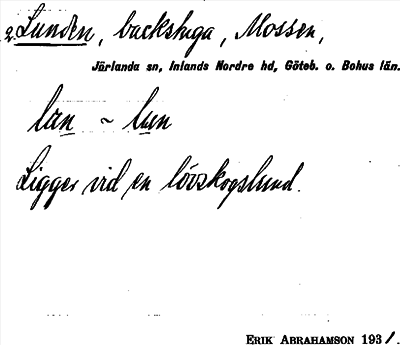 2. Lunden, backstuga, Mossen,
Jörlanda sn, Inlands Nordre hd, Göteb. o. Bohus län.
lan ~ lun
Ligger vid en lövskogslund.
ERIK ABRAHAMSON 1931.